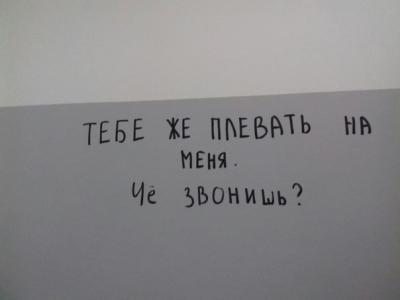 ТЕБЕ ЖЕ ПЛЕВАТЬ НА
МЕНЯ.
Чё ЗВОНИШЬ?